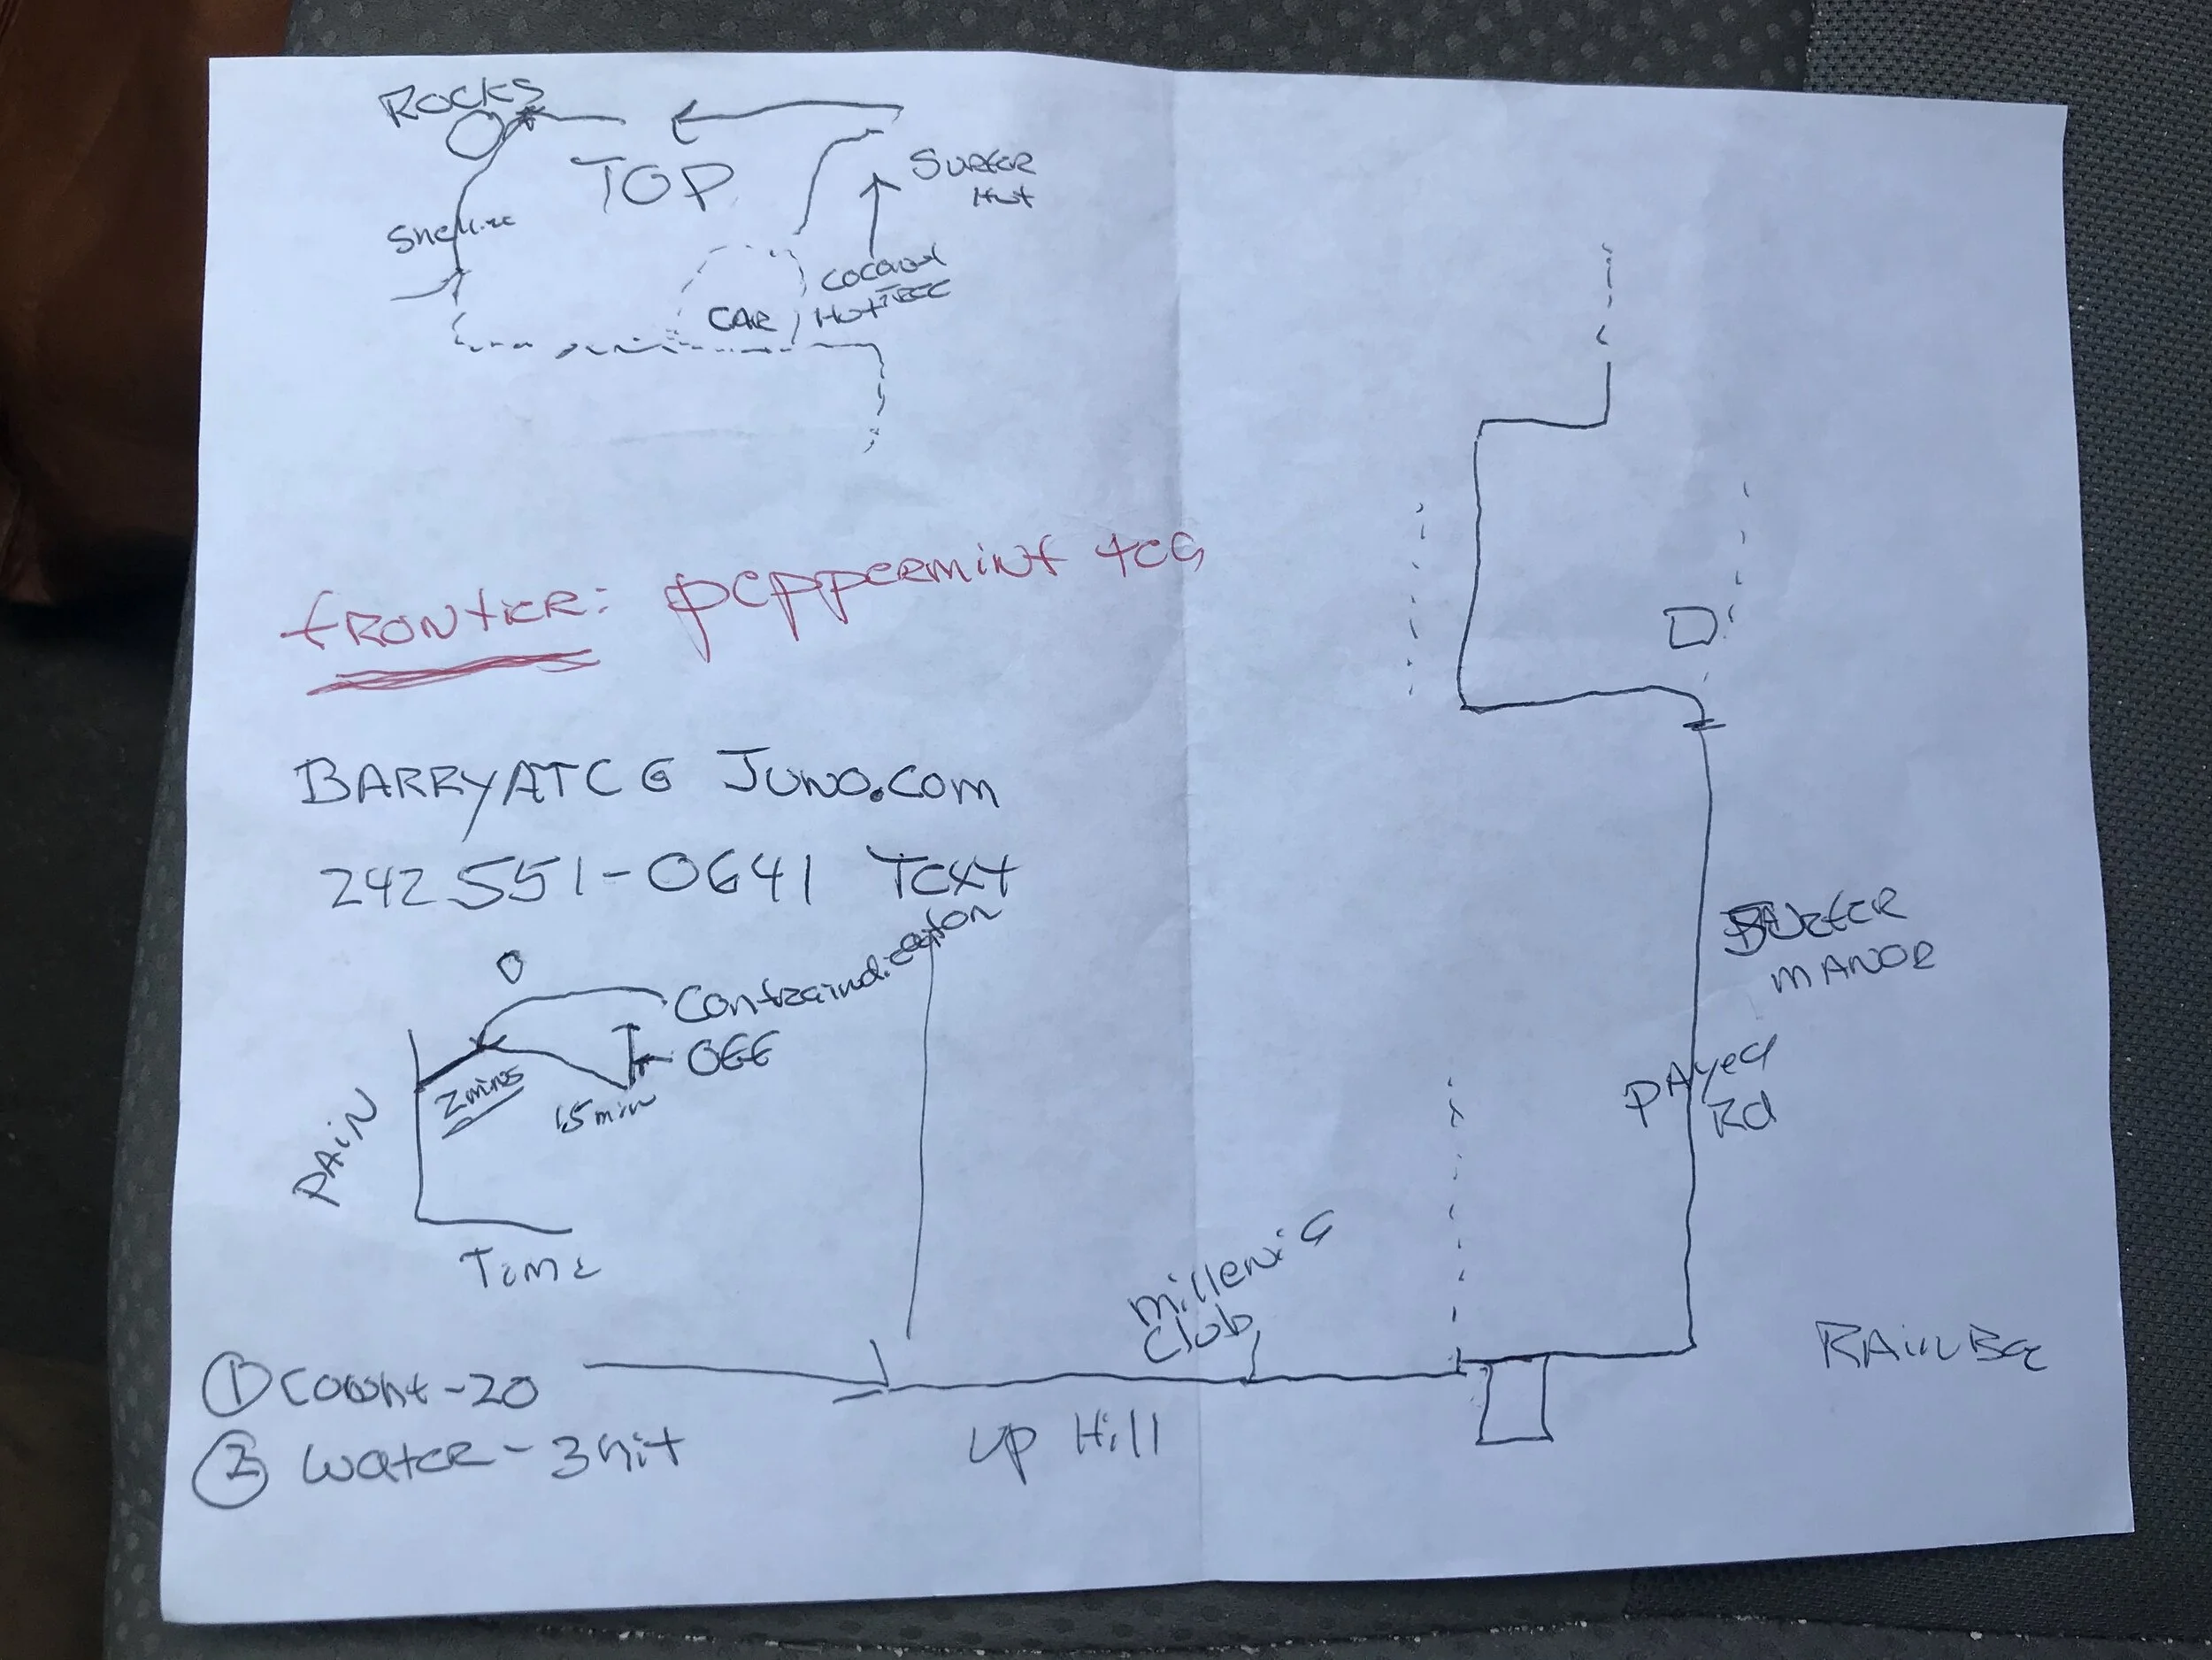 ROCKS
TOP
SURFER
Hut
Shelline
COCONUT
TREE
CAR
Hut
fRONtiER: pEppERmiNt tEA
BARRYATC@ JUNO.COM
242 551-0641 TEXT
Contraindication
OFF
2mins
15min
PAiN
TimE
SURfER
MANOR
PAVED
Rd
millENiA
Club
① Count-20
② WATER - 3hit
Up Hill